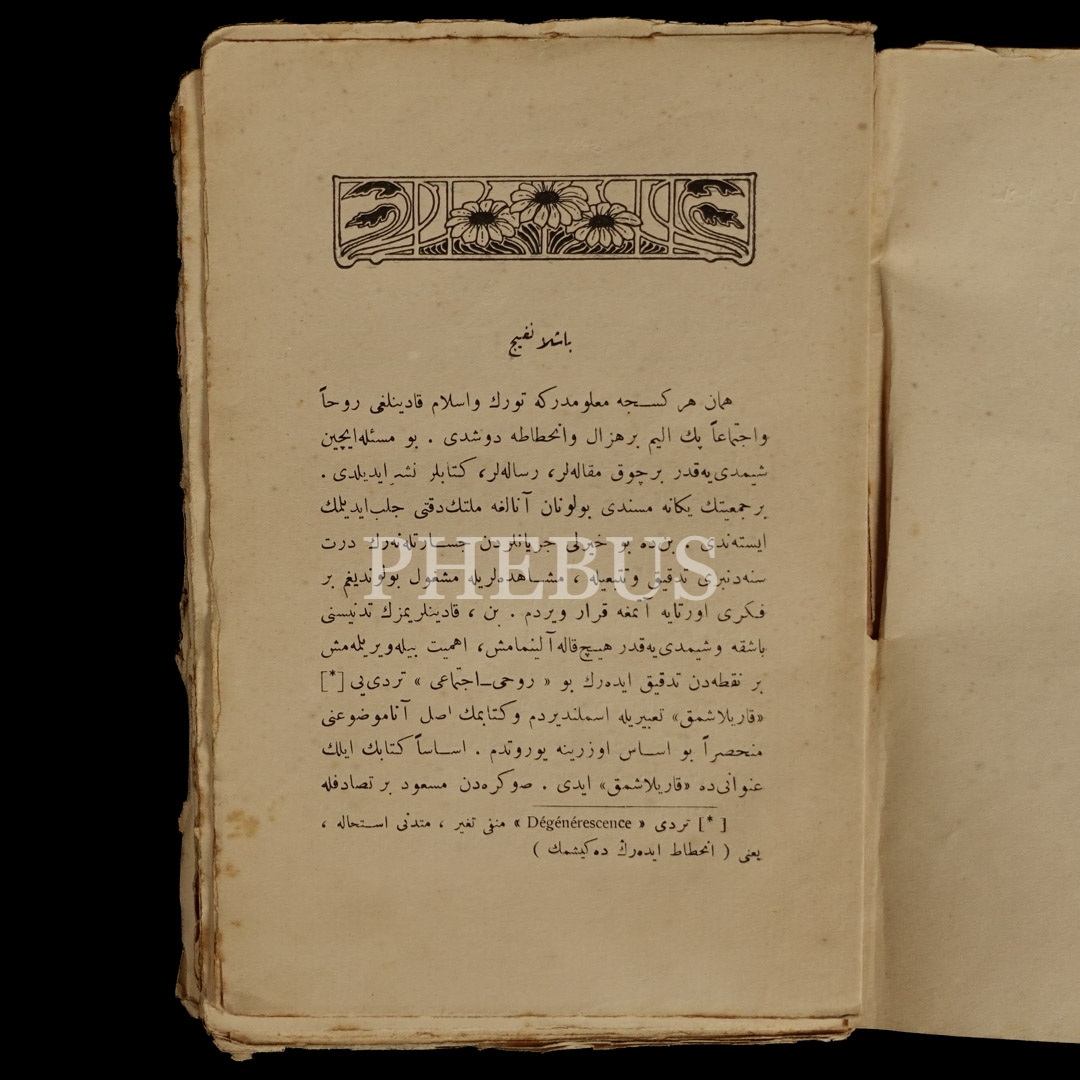 باشلا نغیج
همان هر کســجه معلومدرکه تورك واسلام قادینلغی روحاً
واجتماعاً پك الیم برهزال وانحطاطه دوشدی . بو مسئله‌ایچین
شیمدی‌یه‌قدر برچوق مقاله‌لر، رساله‌لر، کتابلر نشر‌ایدیلدی .
برجمعیتك یکانه مسندی بولونان آنالغه ملتك‌دقتی جلب‌ایدیلمك
ایسته‌ندی . بن‌ده بو خیرلی جریانلردن جســارتله‌نه‌رك درت
سنه‌دنبری تدقیق وتتبعیله ، مشــاهده‌لریله مشغول بولوندیغم بر
فـکری اورتایه آتمغه قرار ویردم . بن ، قادینلریمزك تدنیسنی
باشقه وشیمدی‌یه‌قدر هیــچ‌قاله‌آلینمامش، اهمیت بیله‌ویریلمه‌مش
بر نقطه‌دن تدقیق ایده‌رك بو « روحی_اجتماعی » تردی‌یی [*]
«قاریلاشمق» تعبیریله اسملندیردم وکتابمك اصل آناموضوعنی
منحصراً بو اســاس اوزرینه یوروتدم . اســاساً کتابك ایلك
عنوانی‌ده «قاریلاشمق» ایدی . صوکره‌دن مسعود بر تصادفله
[*] تردی « Dégénérescence » منفی تغیر ، متدنی اســتحاله ،
یعنی ( انحطاط ایده‌رك ده‌کیشمك )
PHEBUS